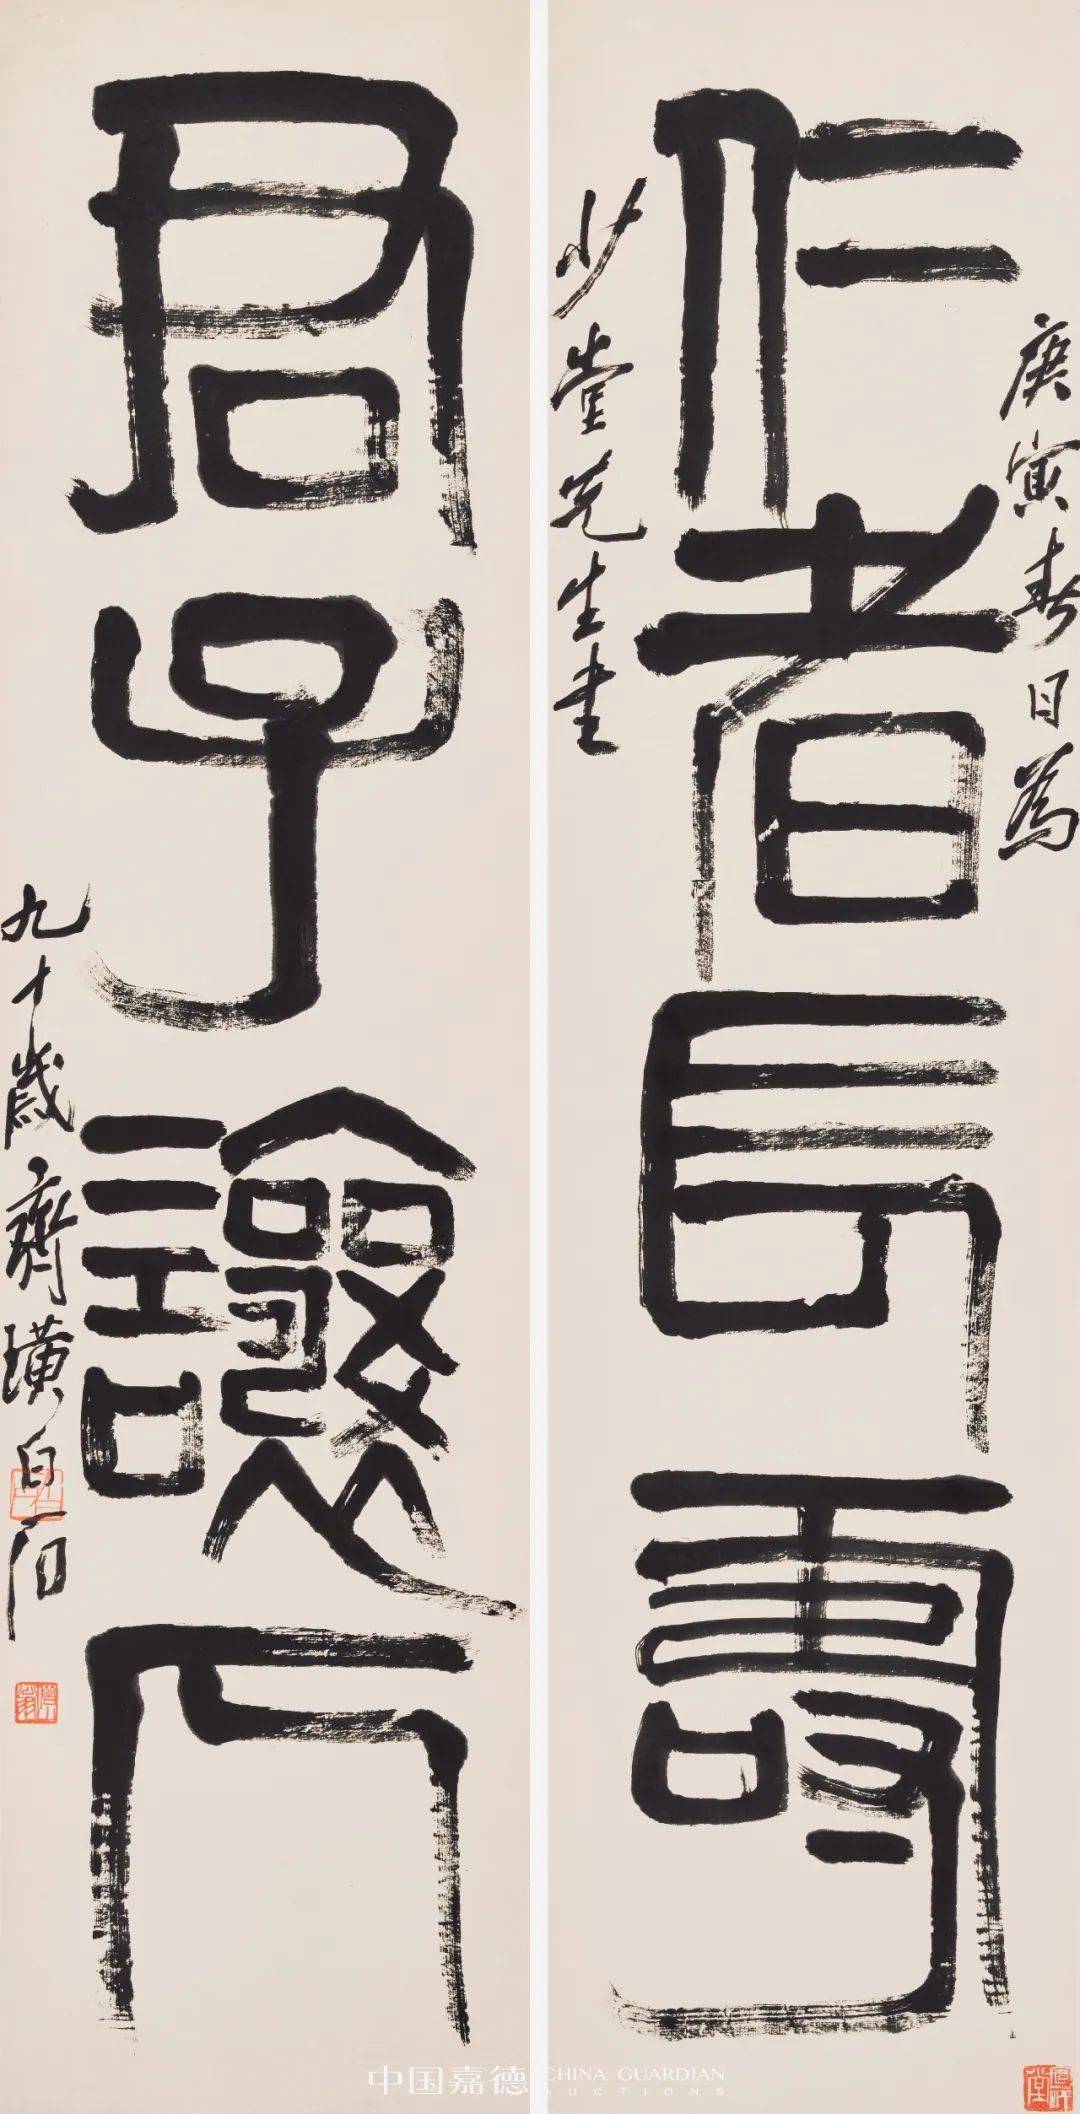 仁者長壽
庚寅春日為
少堂先生書
君子讓人
九十歲齊璜白石
中国嘉德
CHINA GUARDIAN
AUCTIONS